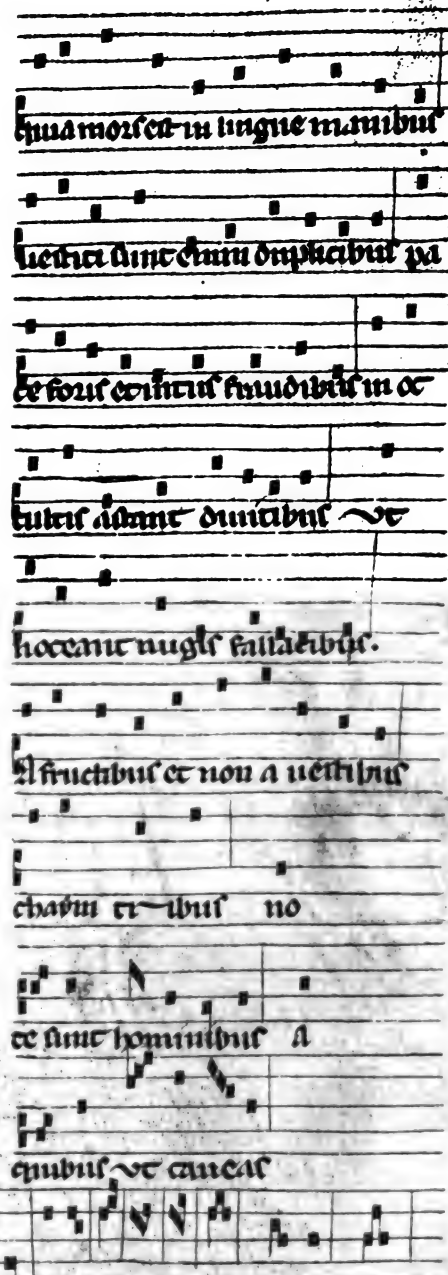 quia mors est in lingue manibus
uestiti sunt enim duplicibus pa
ce foris et intus fraudibus in oc
cultis astant diuitibus ut
noceant nugis fallacibus.
A fructibus et non a uestibus
no
te sunt hominibus a
quibus ut caueas